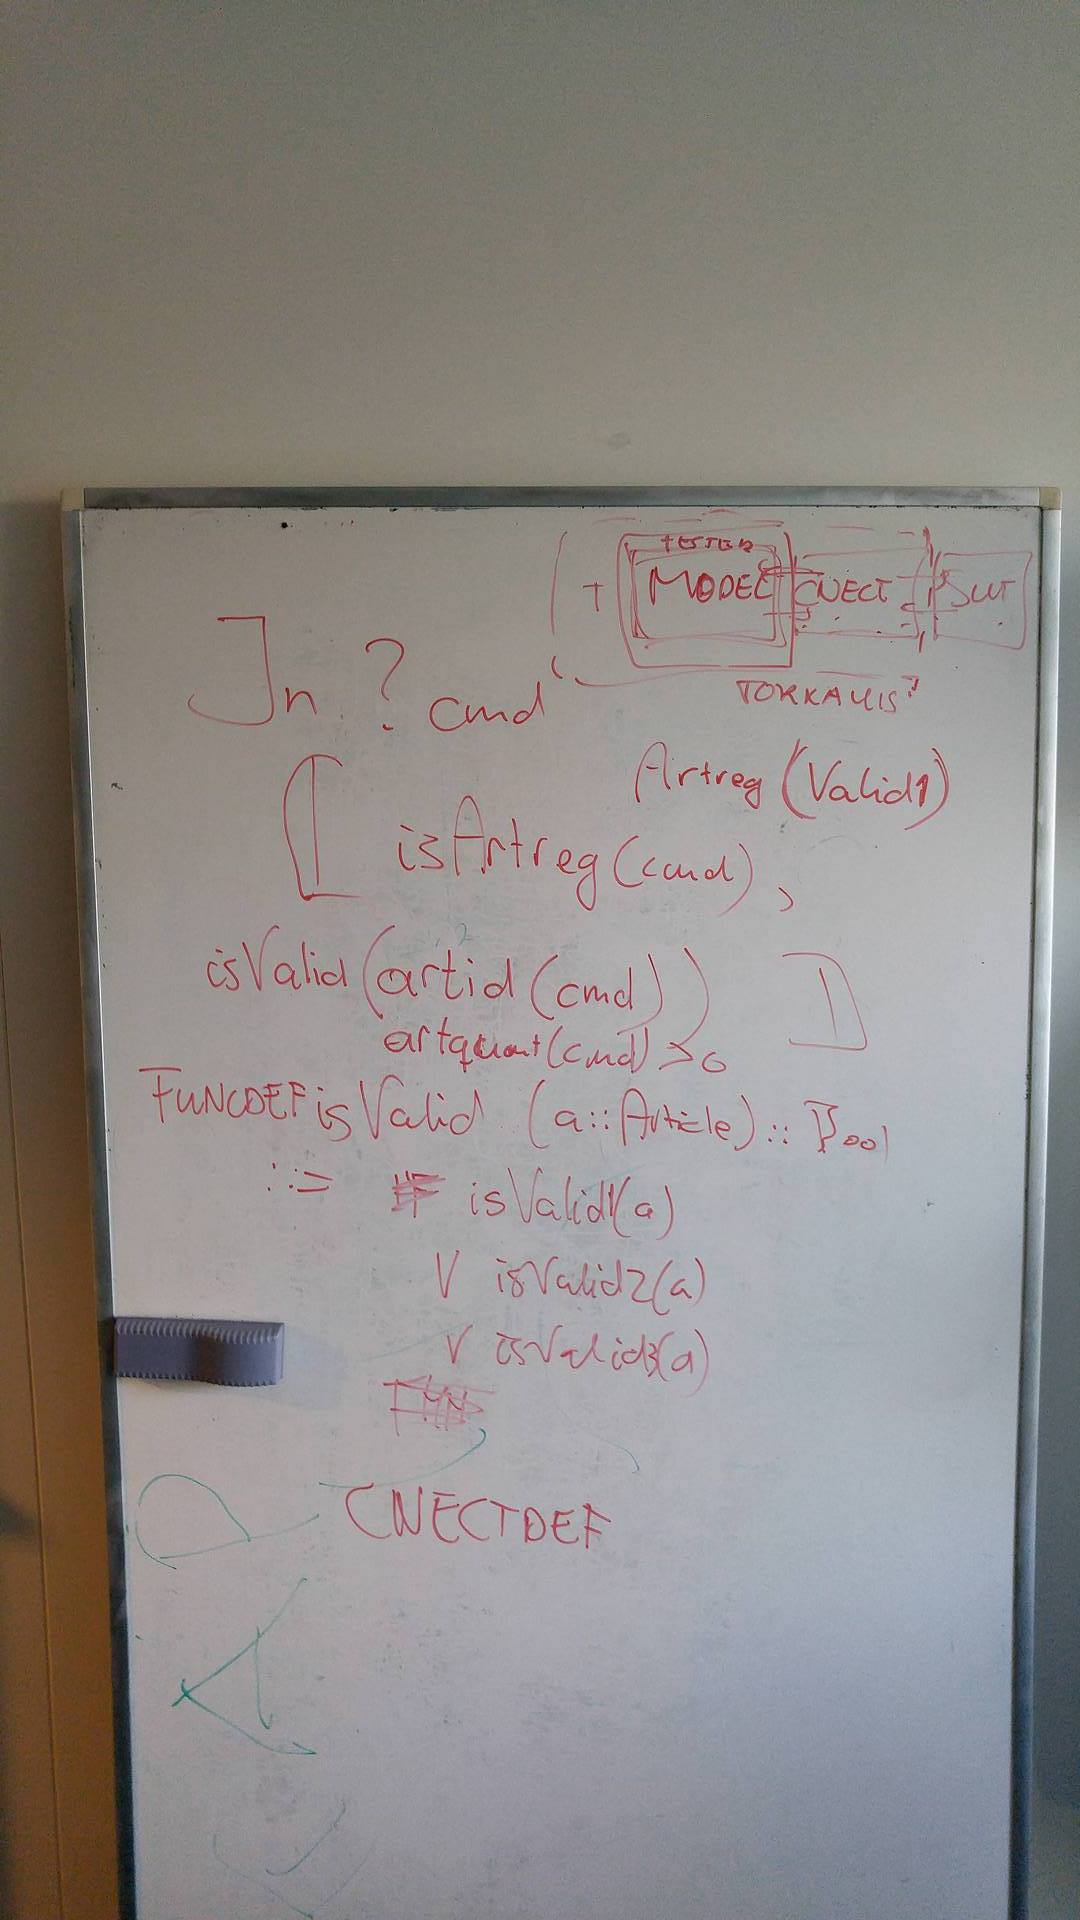 TESTER
MODEL CNECT SUT
TORXAKIS?
In ? cmd
Artreg (Valid1)
[[ isArtreg (cmd),
isValid (artid (cmd))
artquant (cmd) > 0 ]]
FUNCDEF isValid (a::Article) :: Bool
::= isValid1(a)
V isValid2(a)
V isValid3(a)
CNECTDEF